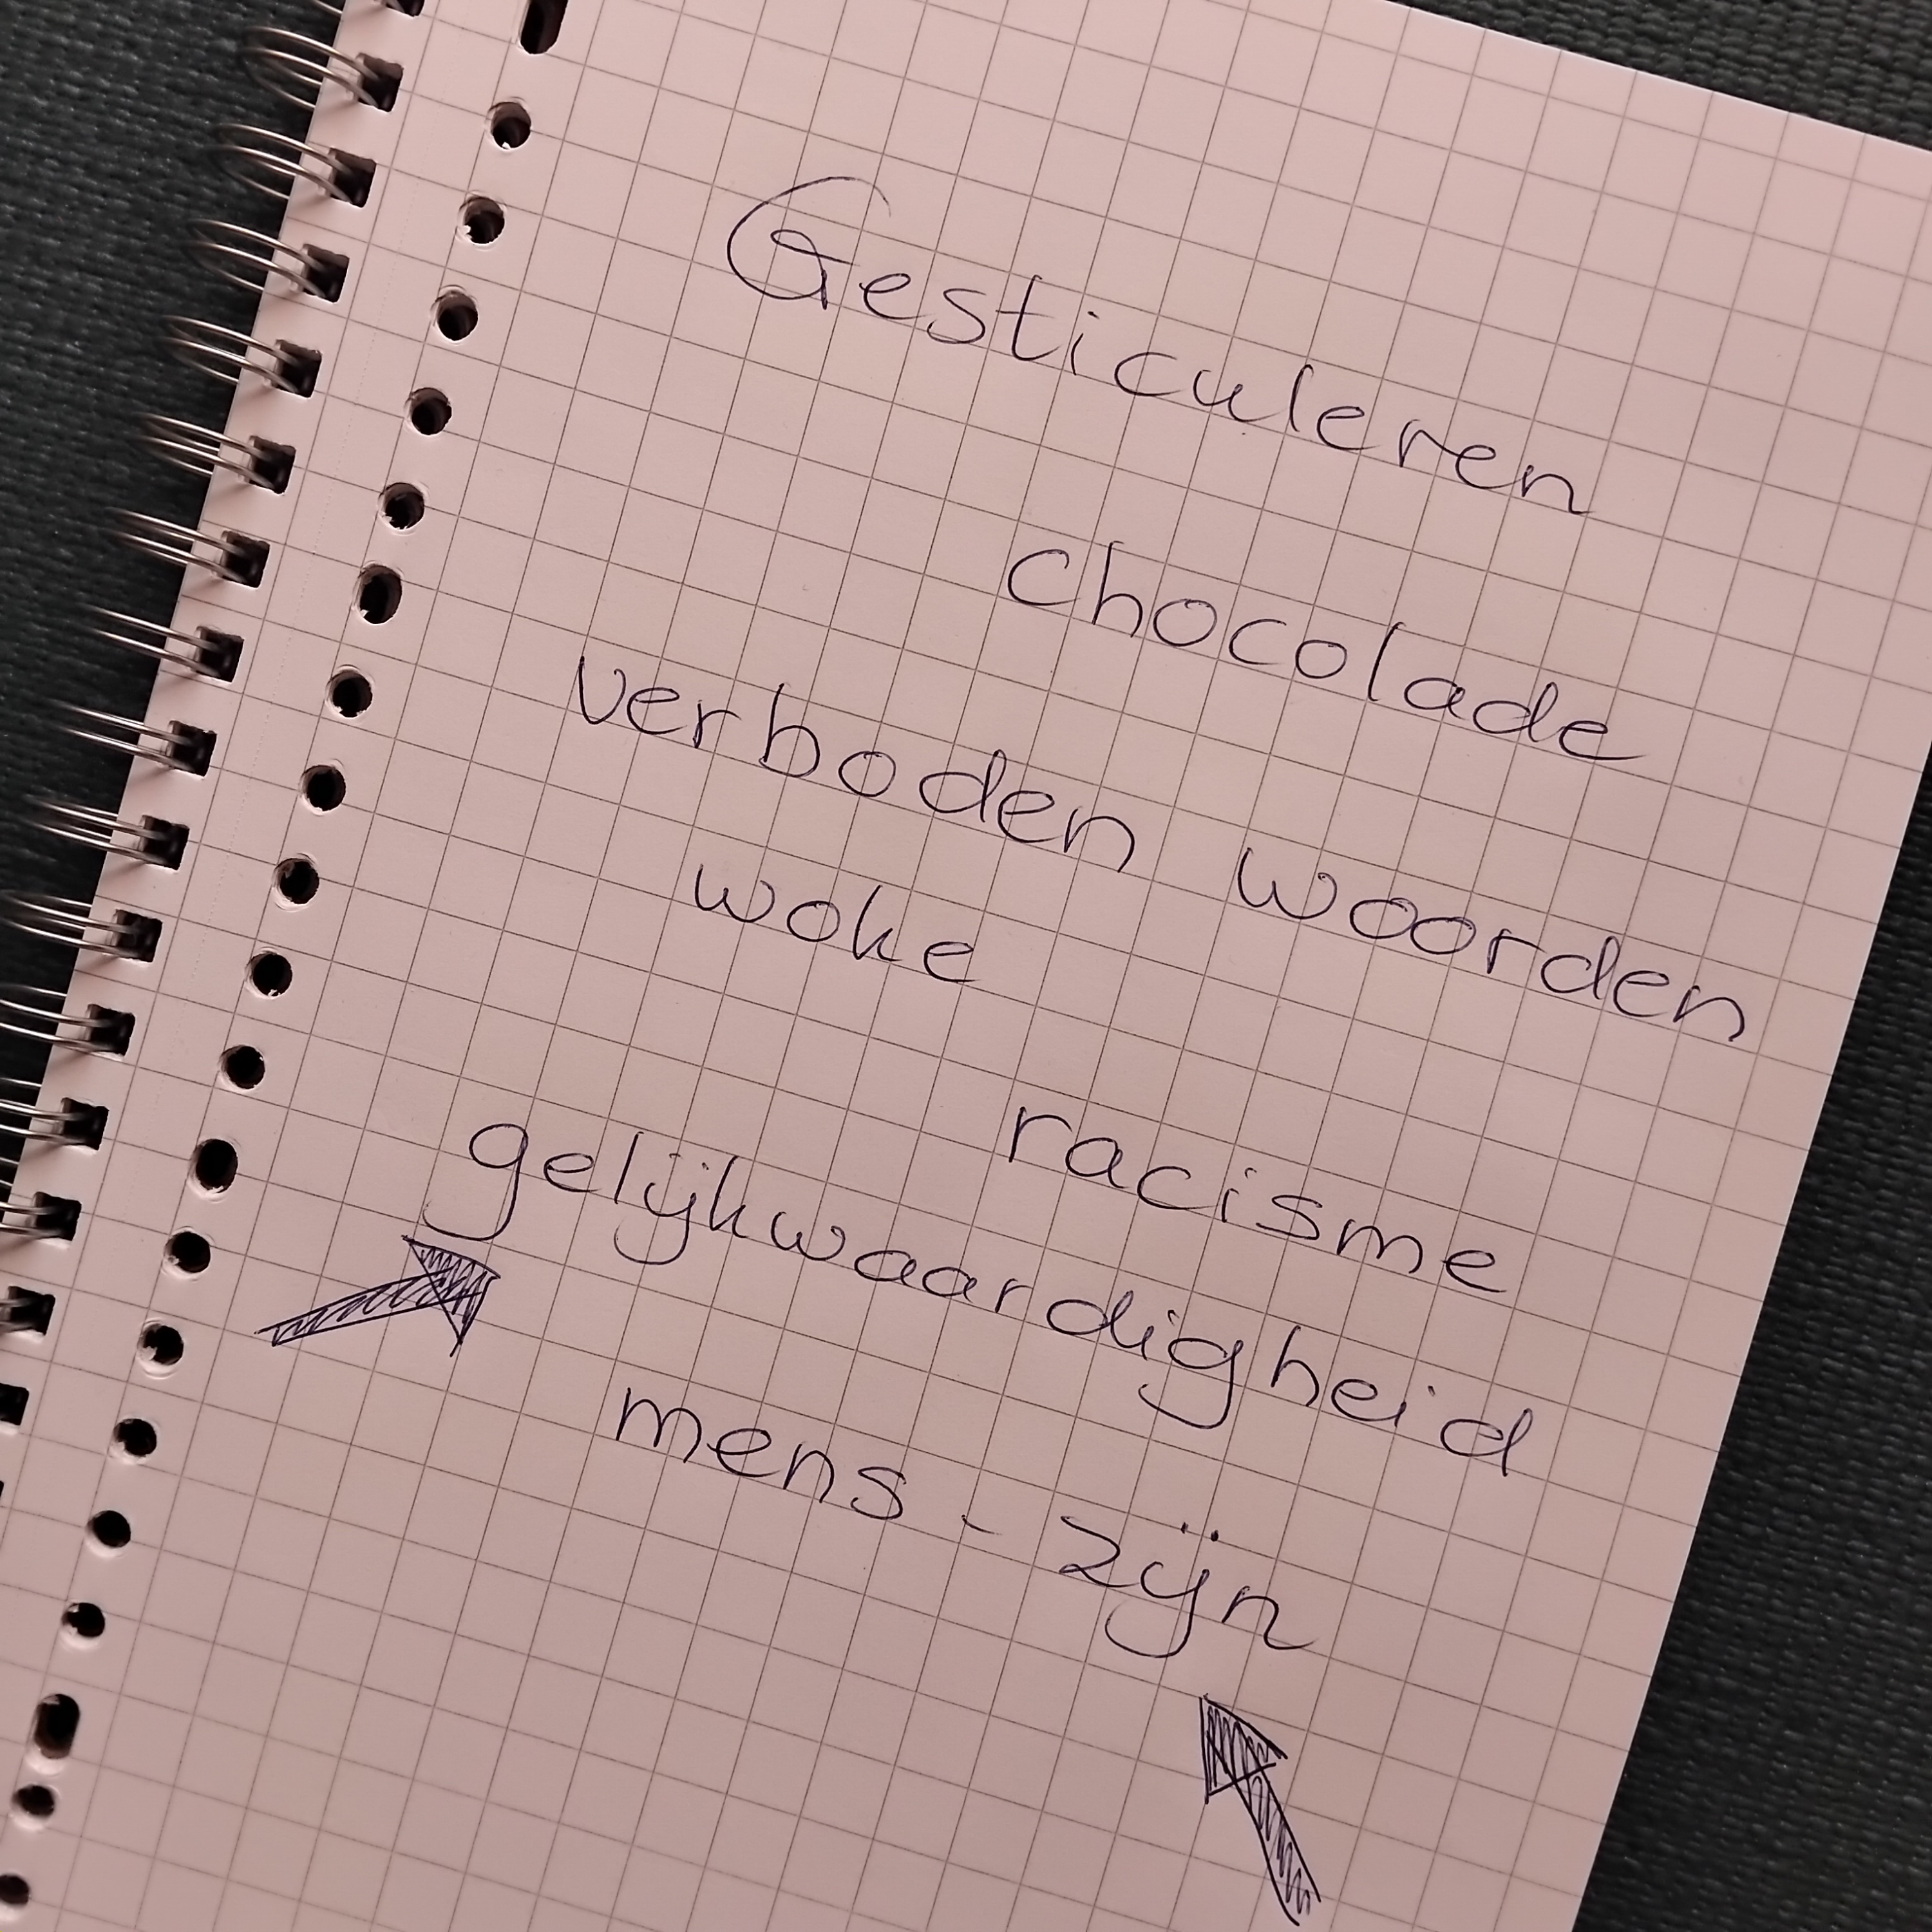 Gesticuleren
chocolade
verboden woorden
woke
racisme
gelijkwaardigheid
mens - zijn